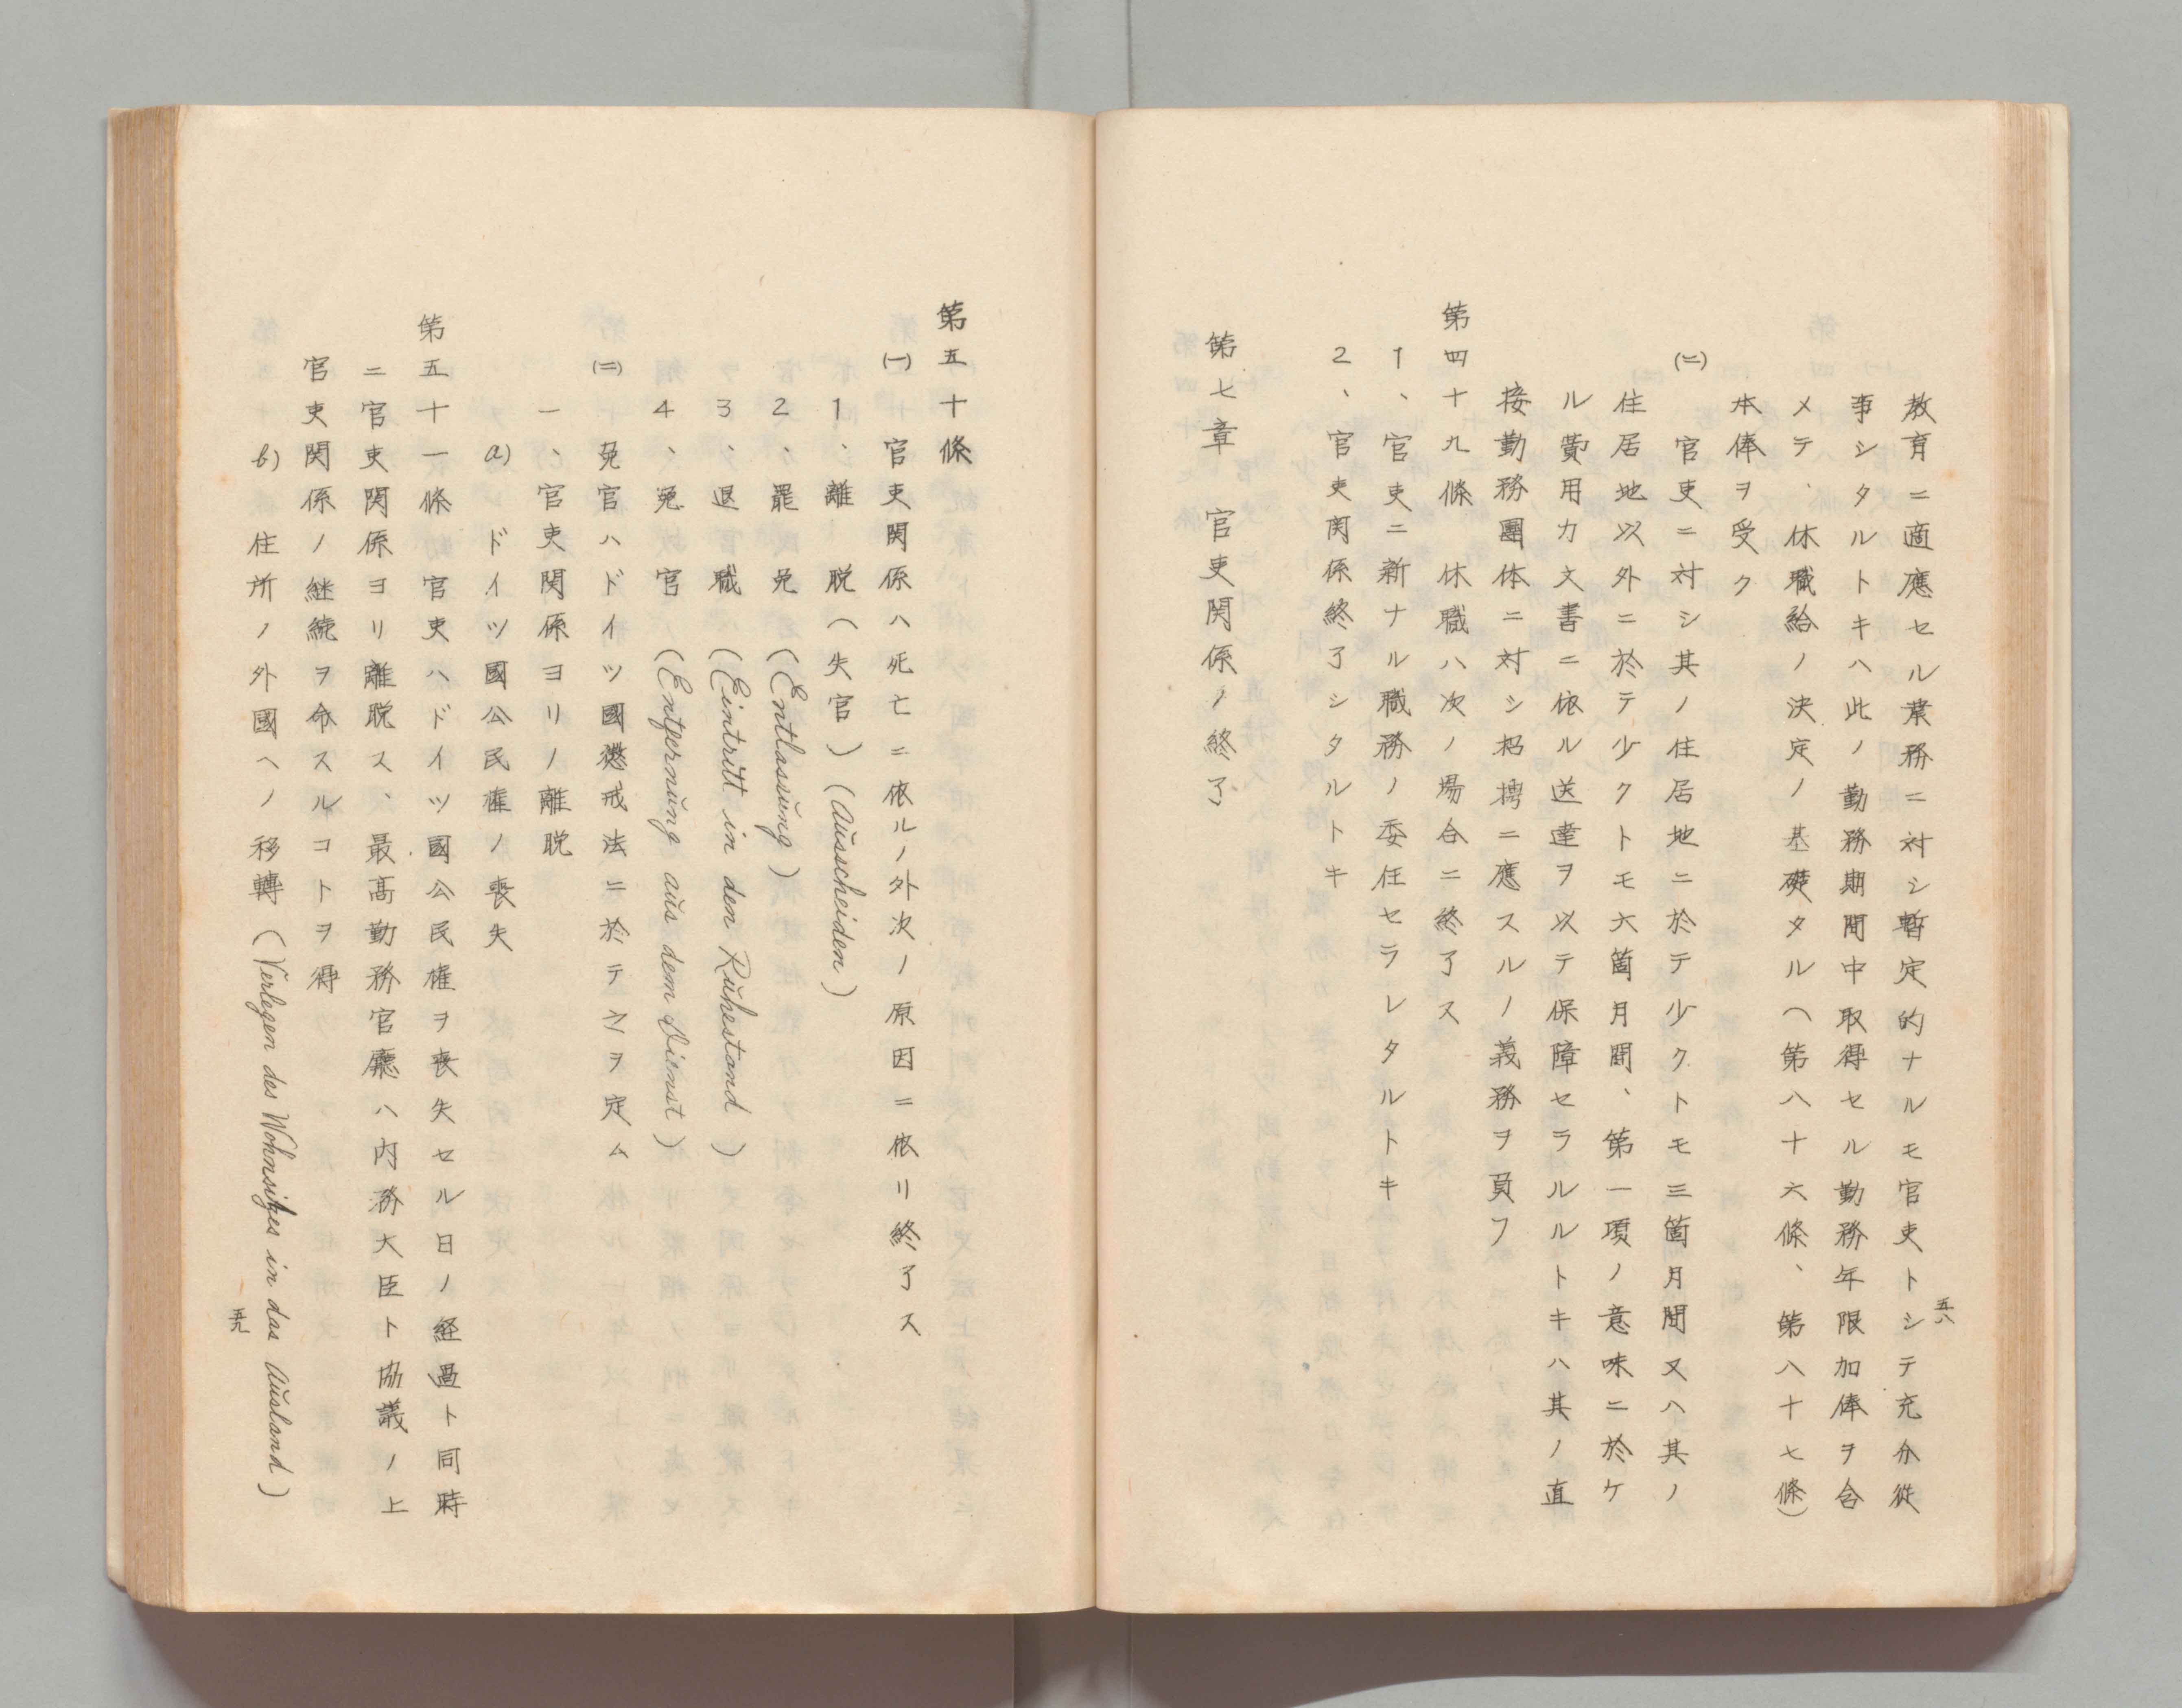 教育ニ適應セル業務ニ対シ暫定的ナルモ官吏トシテ充分從
事シタルトキハ此ノ勤務期間中取得セル勤務年限加俸ヲ含
メテ、休職給ノ決定ノ基礎タル(第八十六條、第八十七條)
本俸ヲ受ク
㈡ 官吏ニ対シ其ノ住居地ニ於テ少クトモ三箇月間又ハ其ノ
住居地以外ニ於テ少クトモ六箇月間、第一項ノ意味ニ於ケ
ル費用カ文書ニ依ル送達ヲ以テ保障セラルルトキハ其ノ直
接勤務團体ニ対シ招聘ニ應スルノ義務ヲ負フ
第四十九條 休職ハ次ノ場合ニ終了ス
1、官吏ニ新ナル職務ノ委任セラレタルトキ
2、官吏関係終了シタルトキ
第七章 官吏関係ノ終了
五八
第五十條
㈠ 官吏関係ハ死亡ニ依ルノ外次ノ原因ニ依リ終了ス
1、離脱(失官)(Ausscheiden)
2、罷免 (Entlassung)
3、退職 (Eintritt in den Ruhestand)
4、免官 (Entfernung aus dem Dienst)
㈡ 免官ハドイツ國懲戒法ニ於テ之ヲ定ム
一、官吏関係ヨリノ離脱
a) ドイツ國公民権ノ喪失
第五十一條 官吏ハドイツ國公民権ヲ喪失セル日ノ経過ト同時
ニ官吏関係ヨリ離脱ス、最高勤務官廳ハ内務大臣ト協議ノ上
官吏関係ノ継続ヲ命スルコトヲ得
b) 住所ノ外國ヘノ移轉(Verlegen des Wohnsitzes in das Ausland)
五九